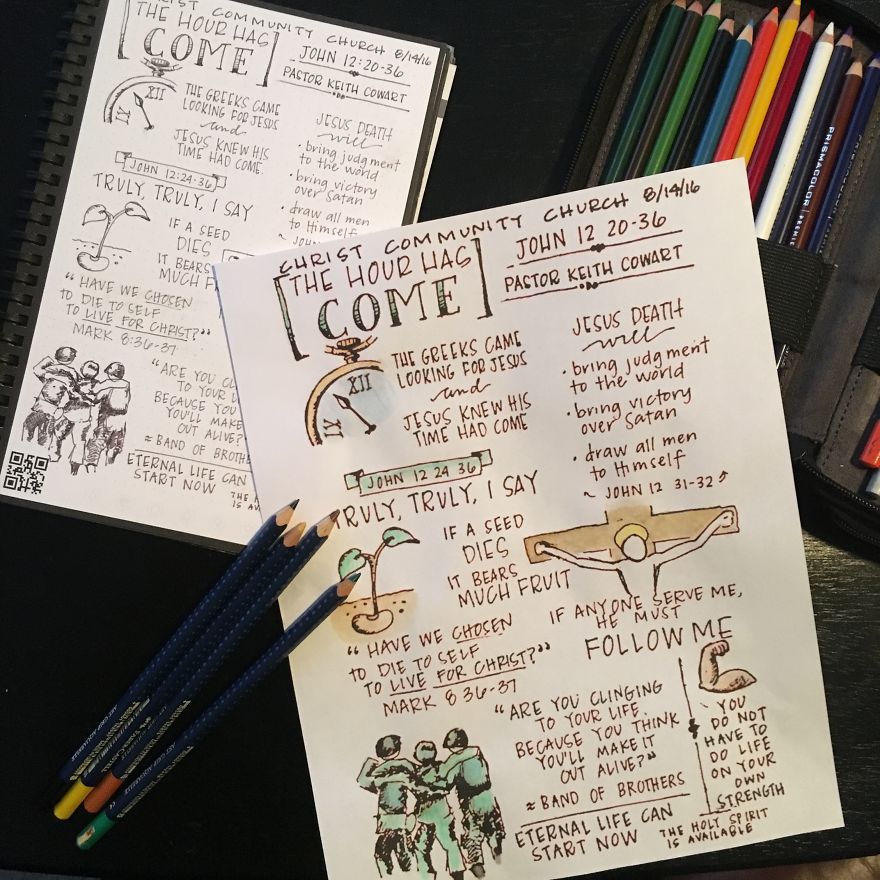 CHRIST COMMUNITY CHURCH 8/14/16
THE HOUR HAS
COME
JOHN 12:20-36
PASTOR KEITH COWART
XII
IX
THE GREEKS CAME
LOOKING FOR JESUS
and
JESUS KNEW HIS
TIME HAD COME.
JESUS DEATH
will
• bring judgment
to the world
• bring victory
over Satan
• draw all men
to Himself
~ JOHN
JOHN 12:24-36
TRULY, TRULY, I SAY
IF A SEED
DIES
IT BEARS
MUCH
"HAVE WE CHOSEN
TO DIE TO SELF
TO LIVE FOR CHRIST?"
MARK 8:36-37
"ARE YOU
TO YOUR
BECAUSE YOU
YOU'LL MAKE
OUT ALIVE?"
≈ BAND OF
ETERNAL LIFE CAN
START NOW
THE
IS
CHRIST COMMUNITY CHURCH 8/14/16
THE HOUR HAS
COME
JOHN 12 20-36
PASTOR KEITH COWART
XII
IX
THE GREEKS CAME
LOOKING FOR JESUS
and
JESUS KNEW HIS
TIME HAD COME
JESUS DEATH
will
• bring judgment
to the world
• bring victory
over Satan
• draw all men
to Himself
~ JOHN 12 31-32
JOHN 12 24 36
TRULY, TRULY, I SAY
IF A SEED
DIES
IT BEARS
MUCH FRUIT
IF ANYONE SERVE ME,
HE MUST
FOLLOW ME
"HAVE WE CHOSEN
TO DIE TO SELF
TO LIVE FOR CHRIST?"
MARK 8 36-37
"ARE YOU CLINGING
TO YOUR LIFE
BECAUSE YOU THINK
YOU'LL MAKE IT
OUT ALIVE?"
≈ BAND OF BROTHERS
ETERNAL LIFE CAN
START NOW
YOU
DO NOT
HAVE TO
DO LIFE
ON YOUR
OWN
STRENGTH
THE HOLY SPIRIT
IS AVAILABLE
PRISMACOLOR